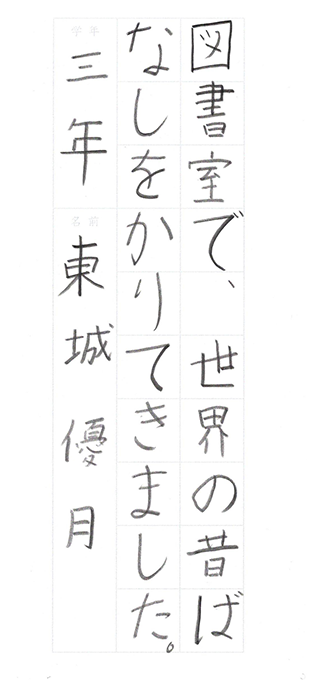 図書室で、世界の昔ば
なしをかりてきました。
学年
三年
名前
東城優月